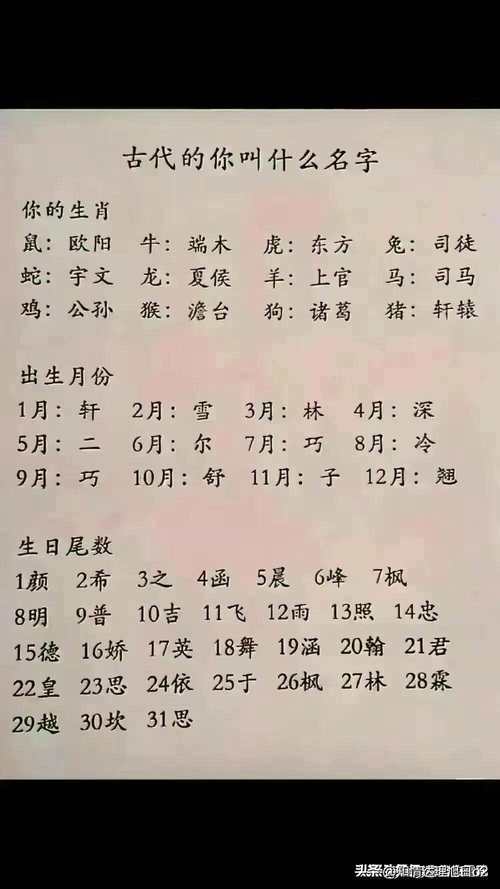 古代的你叫什么名字
你的生肖
鼠：欧阳 牛：端木 虎：东方 兔：司徒
蛇：宇文 龙：夏侯 羊：上官 马：司马
鸡：公孙 猴：澹台 狗：诸葛 猪：轩辕
出生月份
1月：轩 2月：雪 3月：林 4月：深
5月：二 6月：尔 7月：巧 8月：冷
9月：巧 10月：舒 11月：子 12月：翘
生日尾数
1颜 2希 3之 4函 5晨 6峰 7枫
8明 9普 10吉 11飞 12雨 13照 14忠
15德 16娇 17英 18舞 19涵 20翰 21君
22皇 23思 24依 25于 26枫 27林 28霖
29越 30坎 31思